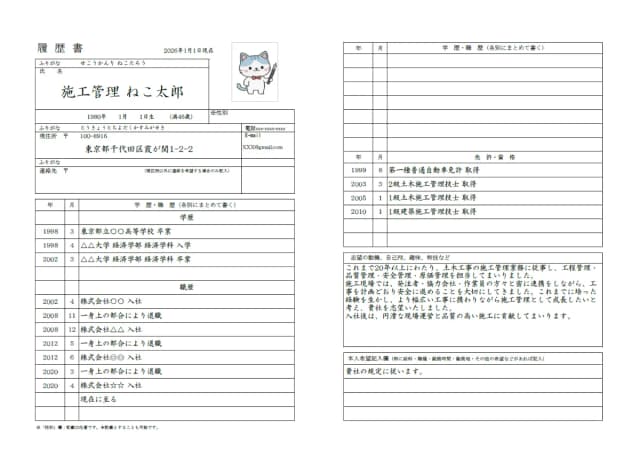 履歴書
2026年1月1日現在
ふりがな せこうかんり ねこたろう
氏 名
施工管理 ねこ太郎
1980年 1月 1日生 (満46歳)
※性別
ふりがな とうきょうとちよだくかすみがせき
電話xxx-xxxx-xxxx
現住所 〒 100-8916
E-mail
東京都千代田区霞が関1-2-2
XXX@gmail.com
ふりがな
連絡先 〒 (現住所以外に連絡を希望する場合のみ記入)
年 月 学 歴・職 歴 (各別にまとめて書く)
学歴
1998 3 東京都立〇〇高等学校 卒業
1998 4 △△大学 経済学部 経済学科 入学
2002 3 △△大学 経済学部 経済学科 卒業
職歴
2002 4 株式会社〇〇 入社
2008 11 一身上の都合により退職
2008 12 株式会社△△ 入社
2012 5 一身上の都合により退職
2012 6 株式会社◎◎ 入社
2020 3 一身上の都合により退職
2020 4 株式会社☆☆ 入社
現在に至る
※「性別」欄:記載は任意です。未記載とすることも可能です。
年 月 学 歴・職 歴 (各別にまとめて書く)
年 月 免 許・資 格
1999 8 第一種普通自動車免許 取得
2003 3 2級土木施工管理技士 取得
2005 1 1級土木施工管理技士 取得
2010 1 1級建築施工管理技士 取得
志望の動機、自己PR、趣味、特技など
これまで20年以上にわたり、土木工事の施工管理業務に従事し、工程管理・
品質管理・安全管理・原価管理を担当してまいりました。
施工現場では、発注者・協力会社・作業員の方々と密に連携をしながら、工
事を計画どおり安全に進めることを大切にしてきました。これまでに培った
経験を生かし、より幅広い工事に携わりながら施工管理として成長したいと
考え、貴社を志望いたしました。
入社後は、円滑な現場運営と品質の高い施工に貢献してまいります。
本人希望記入欄 (特に給料・職種・勤務時間・勤務地・その他の希望などがあれば記入)
貴社の規定に従います。